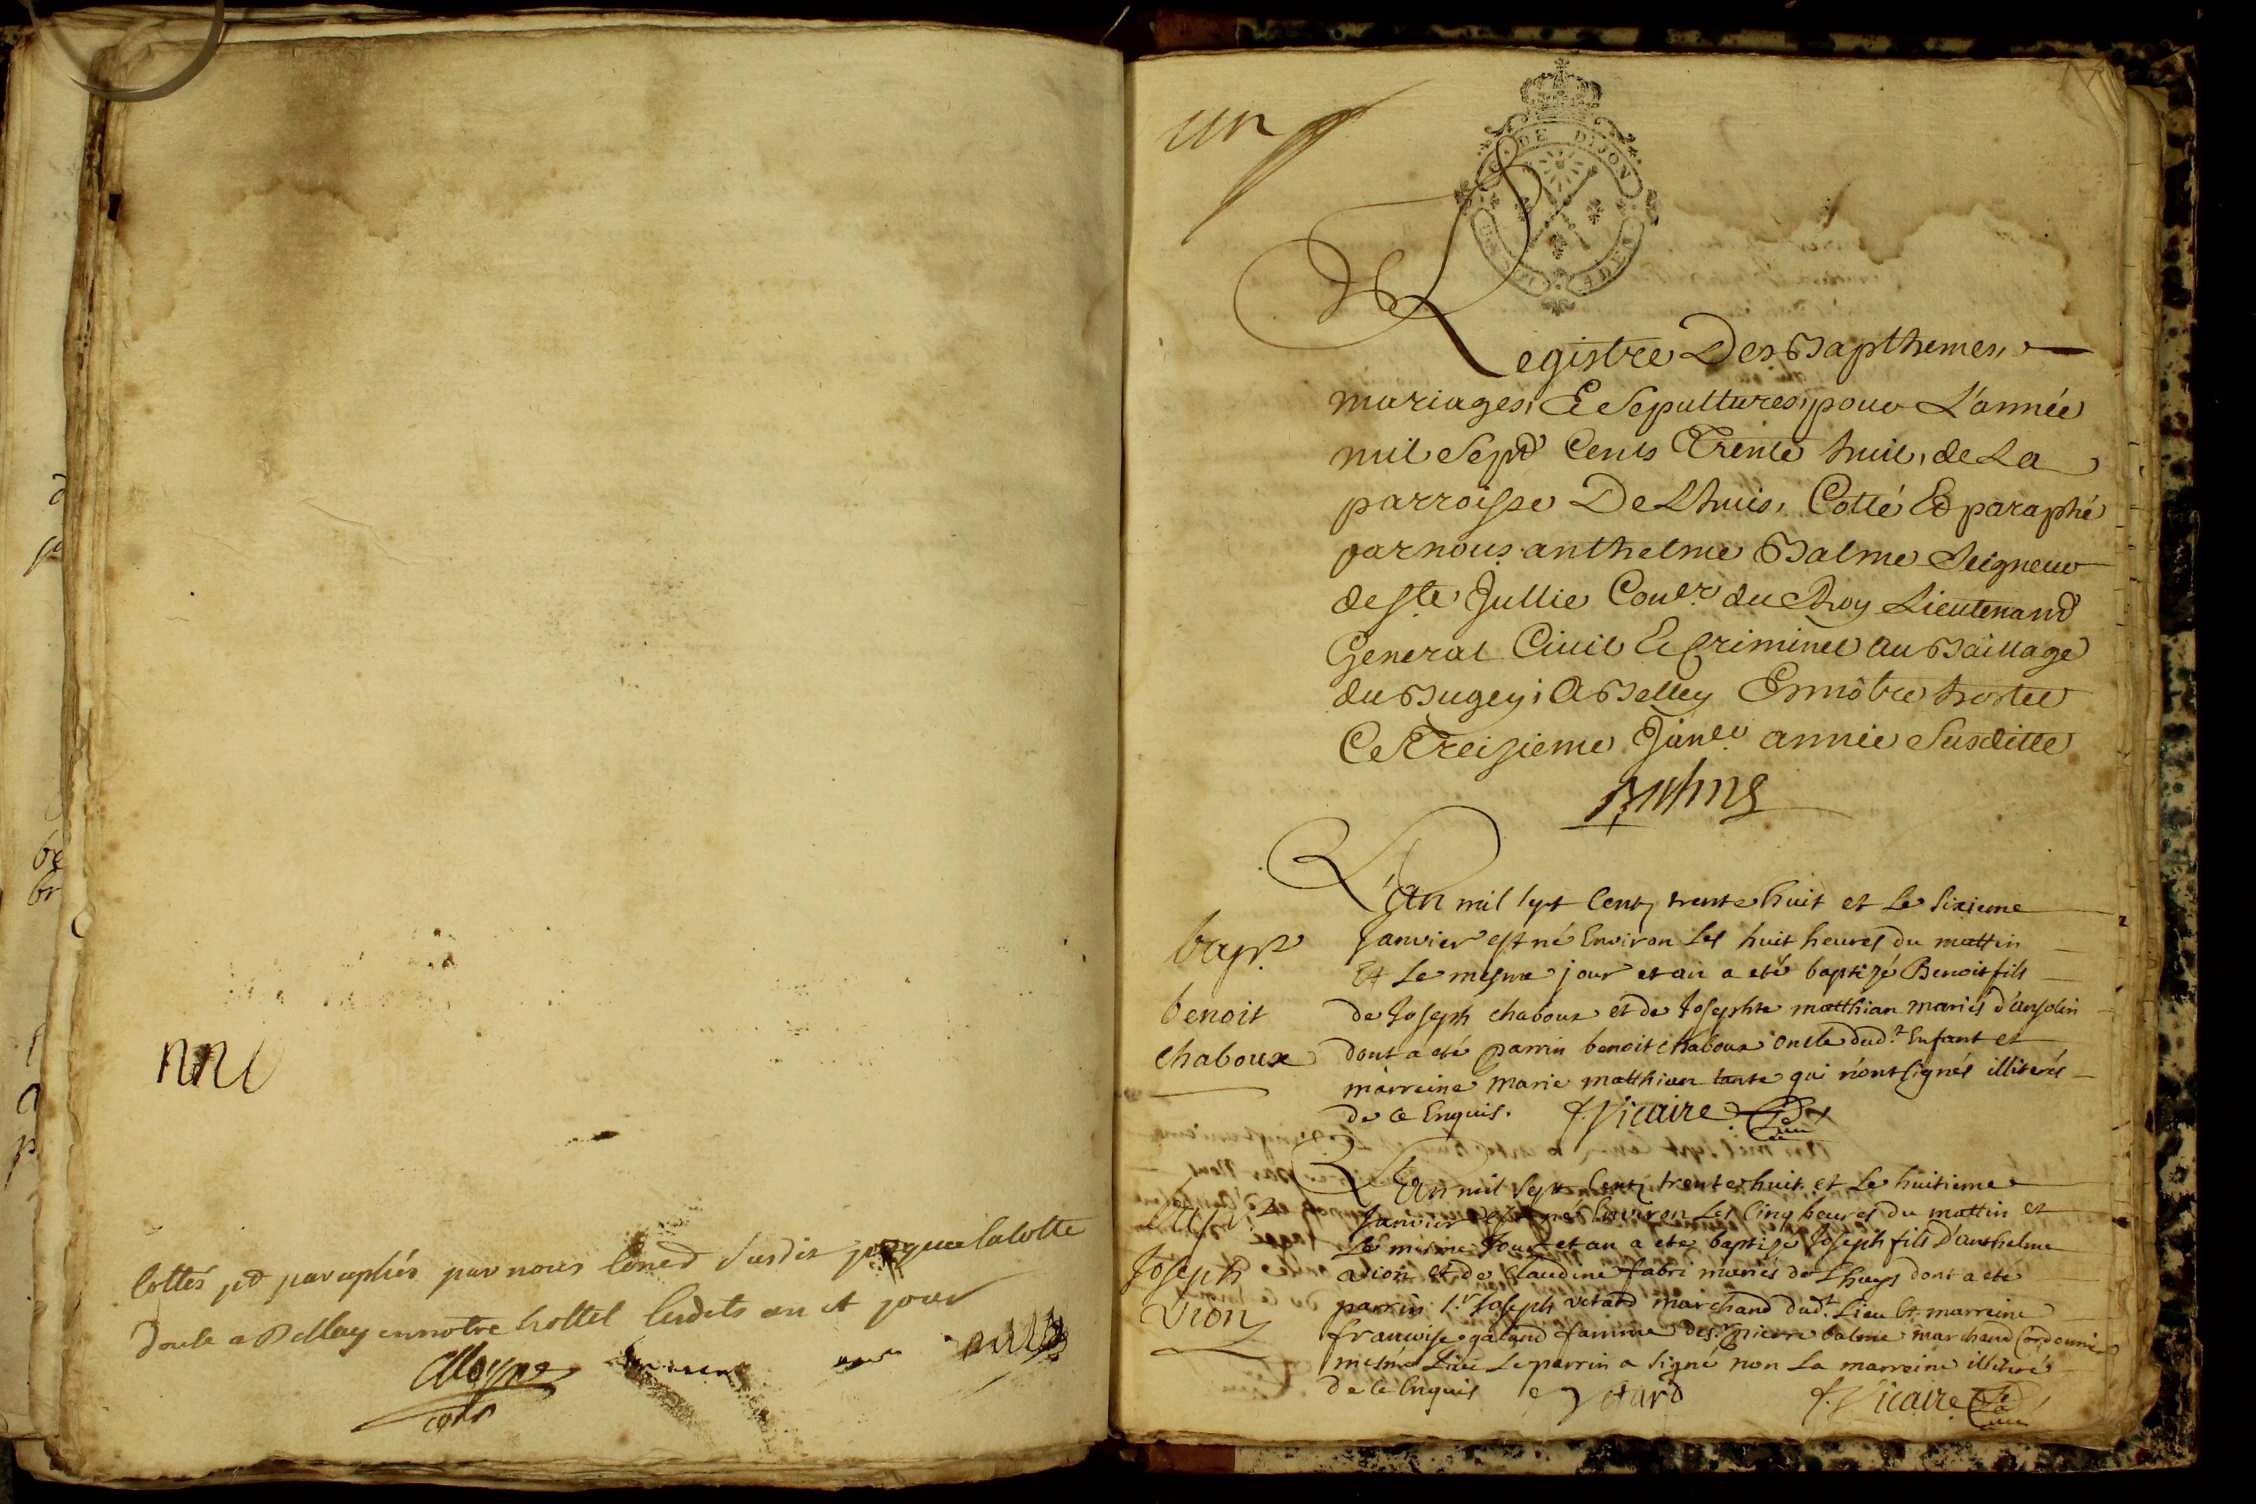 Cottés et paraphés par nous Con.er susdit jusques la cotte
doule a Belley en notre hottel lesdits an et jour
un
DE DIJON
Registre Des Bapthemes,
mariages, Et Sepultures, pour L'année
mil Sept Cents Trente huit, de La
parroisse De Lhuis, Cotté Et paraphé
par nous anthelme Balme Seigneur
de Ste Jullie Con.er du Roy Lieutenant
General Civil Et Criminel au Bailliage
du Bugey, A Belley En nôtre hostel
Ce Treisieme Janv.er année Susditte
Balme
L'an mil sept Cent trente huit et Le sixieme
Janvier est né Environ Les huit heures du mattin
Et Le mesme jour et an a eté baptizé Benoit fils
de Joseph chaboux et de Josephte matthian mariés d'ansolin
dont a eté parrin benoit chaboux oncle dud.t Enfant et
marreine marie matthian tante qui n'ont signés illiterés
de ce Enquis. f. Vicaire
bapt.
benoit
chaboux
L'an mil sept Cent trente huit et Le huitieme
Janvier est né Environ Les Cinq heures du mattin et
Le mesme Jour et an a eté baptizé Joseph fils D'anthelme
vion et de Claudine fabri mariés de Lhuys dont a eté
parrin s.r Joseph vetard marchand dud.t Lieu Et marreine
francoise galand famme de s.r pierre balme marchand Cordonnier
mesme Lieu Le parrin a signé non La marreine illiterée
de ce Enquis vetard f. Vicaire
bapt.
Joseph
vion